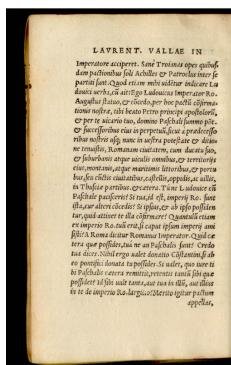 LAVRENT. VALLAE IN
Imperatore acciperet. Sanè Troianas opes quibus-
dam pactionibus soli Achilles & Patroclus inter se
partiti sunt. Quod etiam mihi uidetur indicare Lu
douici uerba, cū ait: Ego Ludouicus Imperator Ro.
Augustus statuo, & cōcedo, per hoc pactū cōfirma-
tionis nostræ, tibi beato Petro principi apostolorū,
& per te uicario tuo, domino Paschali summo pōt.
& successoribus eius in perpetuū, sicut a prædecesso
ribus nostris usq; nunc in uestra potestate & ditio-
ne tenuistis, Romanam ciuitatem, cum ducatu suo,
& suburbanis atque uiculis omnibus & territorijs
eius, montanis, atque maritimis littoribus, & portu
bus, seu cūctis ciuitatibus, castellis, oppidis, ac uillis,
in Thusciæ partibus. & cætera. Tūne Ludouice cū
Paschale pacisceris? Si tua, id est, imperij Ro. sunt
ista, cur alteri cōcedis? Si ipsius, & ab ipso possidem
tur, quid attinet te illa cōfirmare? Quantulū etiam
ex imperio Ro. tuū erit, si caput ipsum imperij ami
sisti? A Roma dicitur Romanus Imperator. Quid cæ
tera quæ possides, tui ne an Paschalis sunt? Credo
tua dices. Nihil ergo ualet donatio Cōstantini, si ab
eo pontifici donata tu possides. Si ualet, quo iure ti
bi Paschalis cætera remittit, retentis tantū sibi quæ
possidet? Id sibi uult tanta, aut tua in illū, aut illius
in te de imperio Ro. largitio? Meritò igitur pactum
appellas,